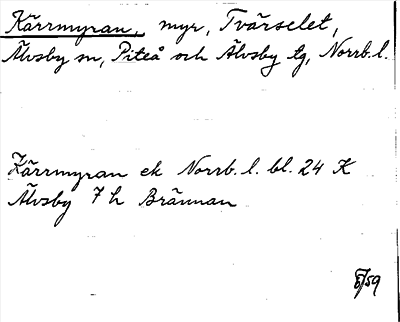 Kärrmyran, myr, Tvärselet,
Älvsby sn, Piteå och Älvsby tg, Norrb. l.
Kärrmyran ek Norrb. l. bl. 24 K
Älvsby 7 h Brännan